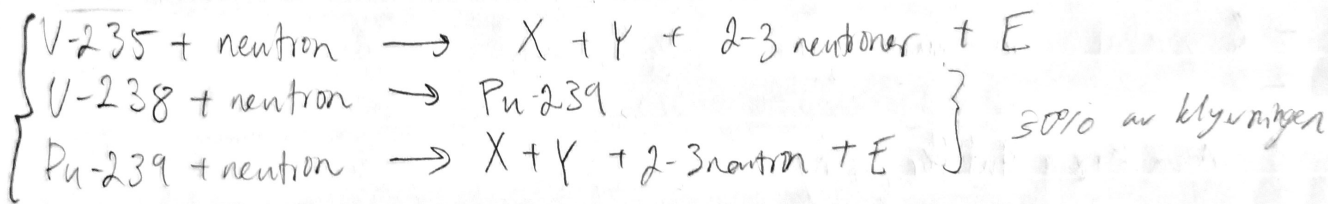 U-235 + neutron → X + Y + 2-3 neutroner + E
U-238 + neutron → Pu-239
Pu-239 + neutron → X + Y + 2-3 neutron + E
30% av klyvningen